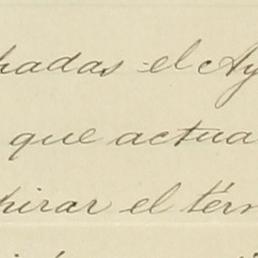 hadas el Ay
que actua
pirar el térm